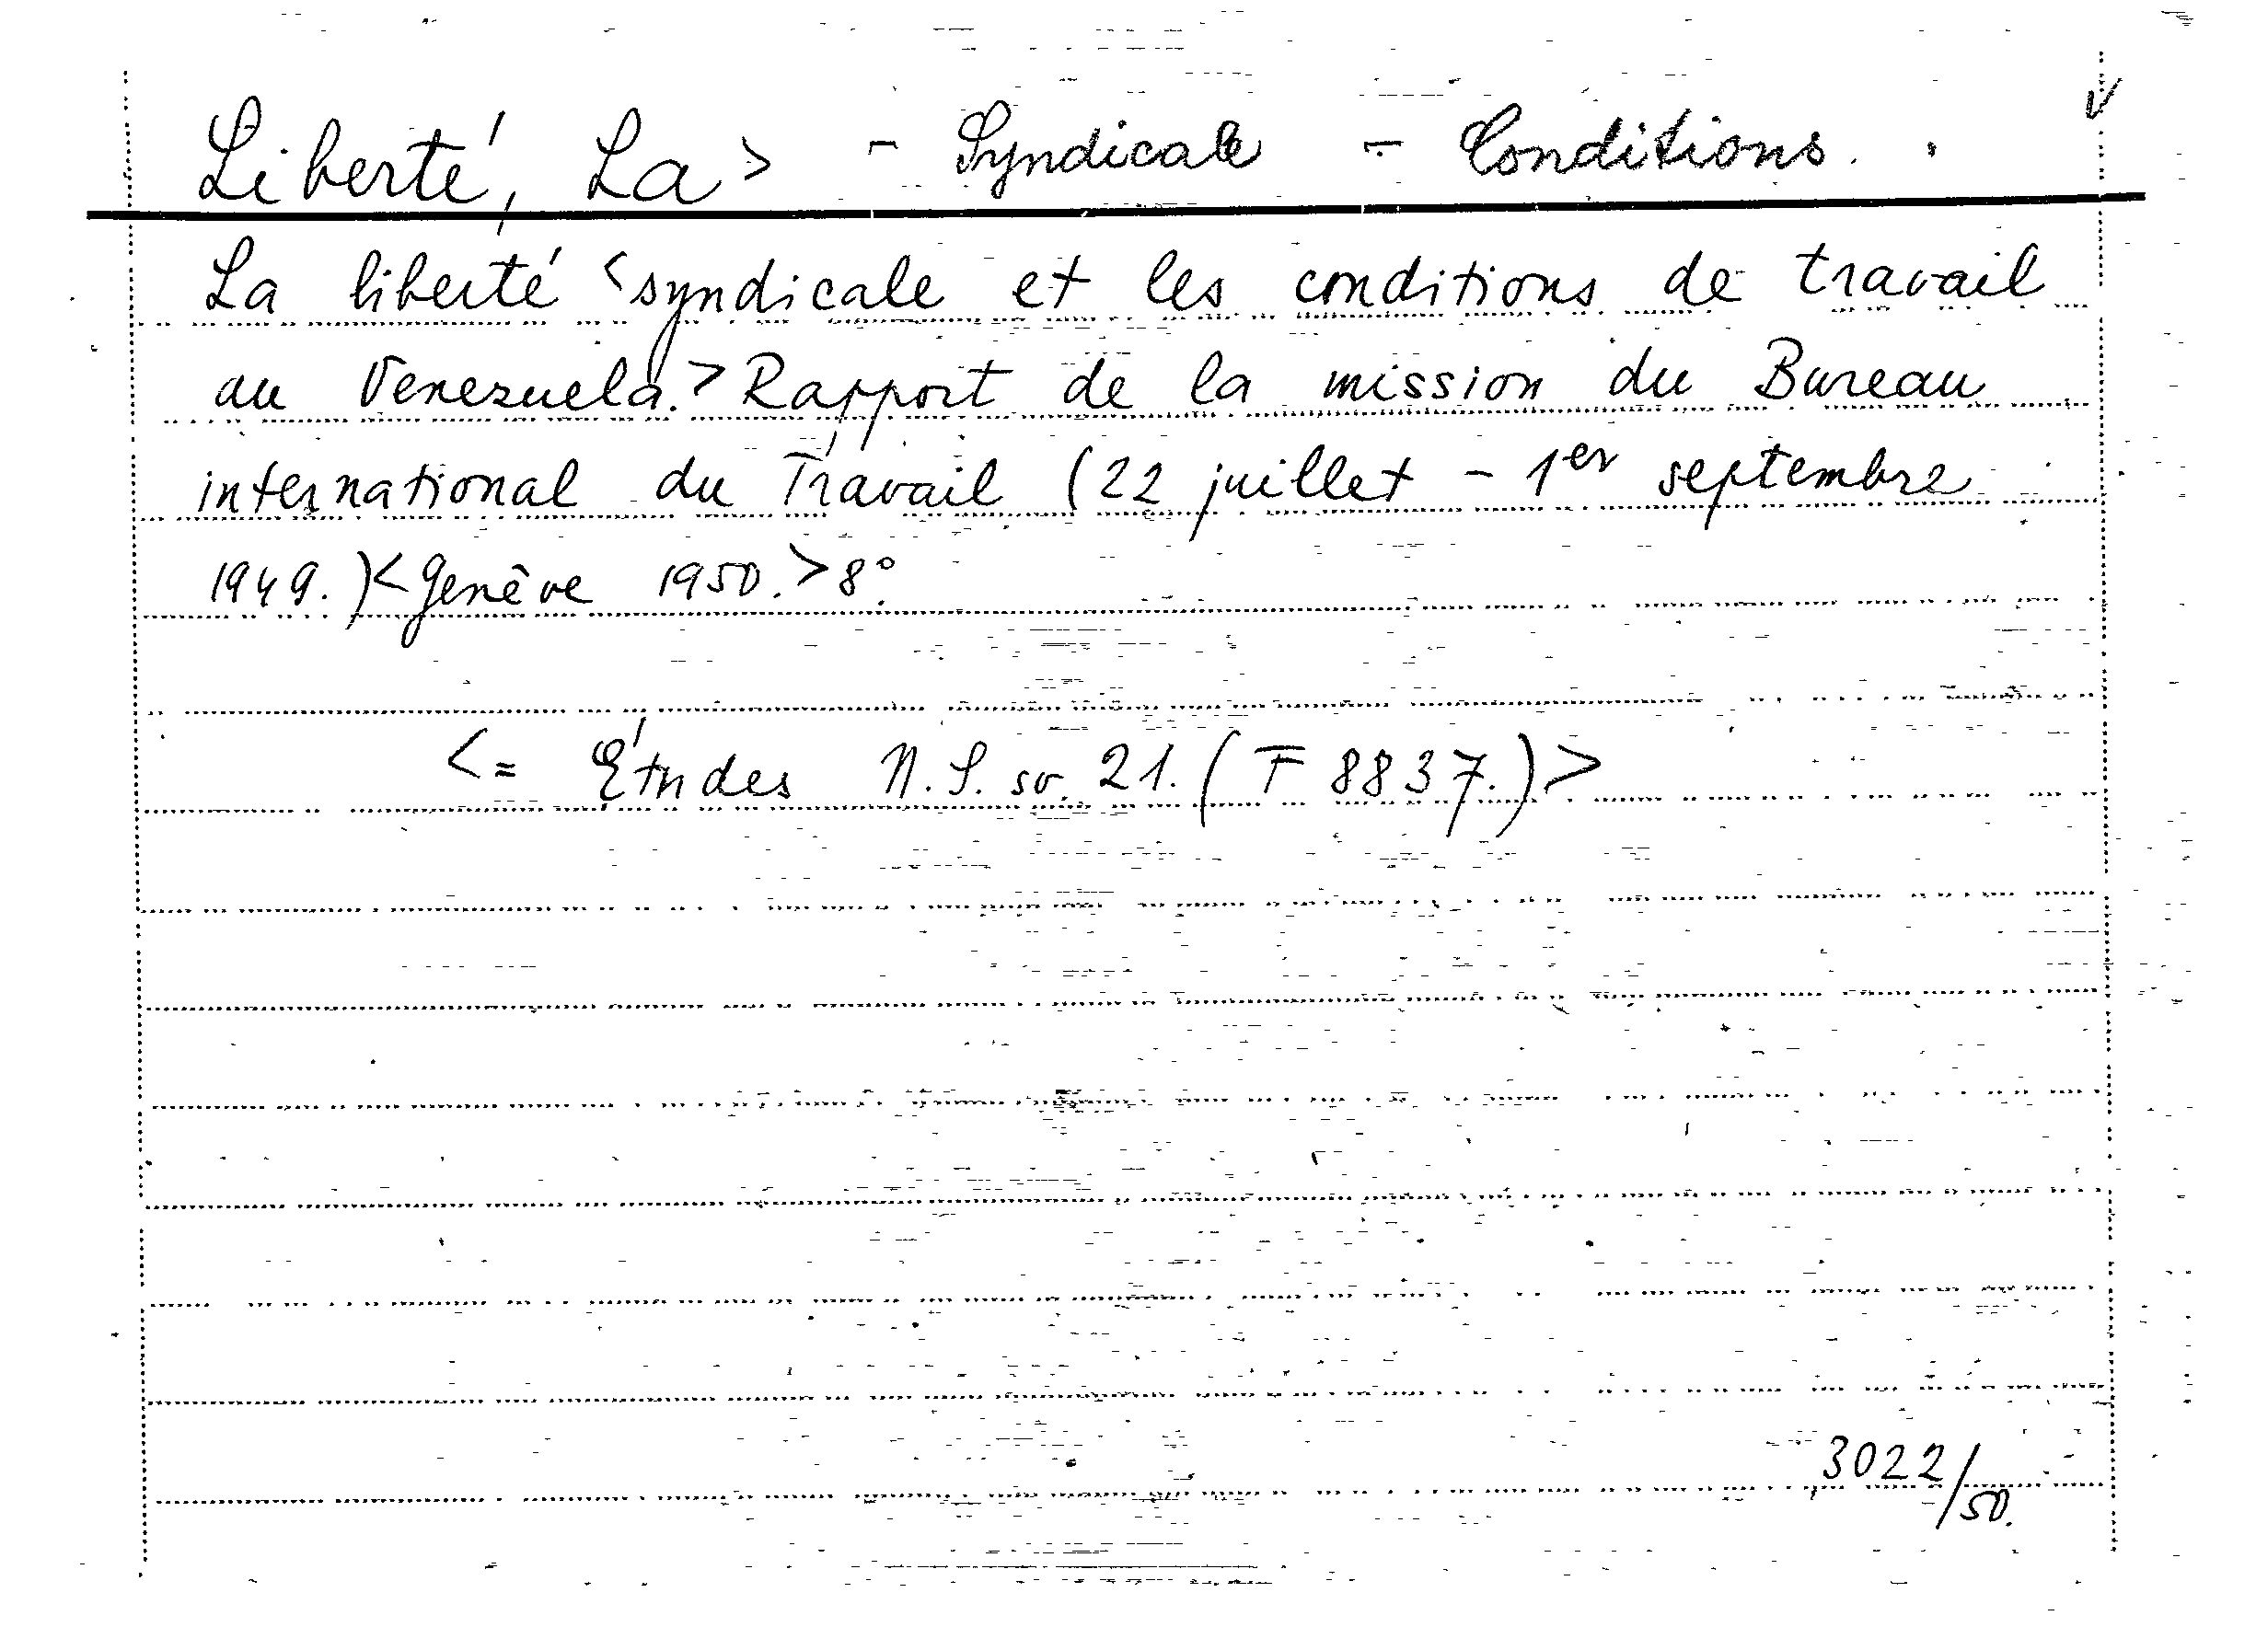 Liberté, La > - Syndicale - Conditions.
La liberté <syndicale et les conditions de travail
au Venezuela.> Rapport de la mission du Bureau
international du Travail (22 juillet - 1er septembre
1949.)< Genève 1950.> 8°.
<= Études N.S. sv. 21. (F 8837.)>
3022/50.